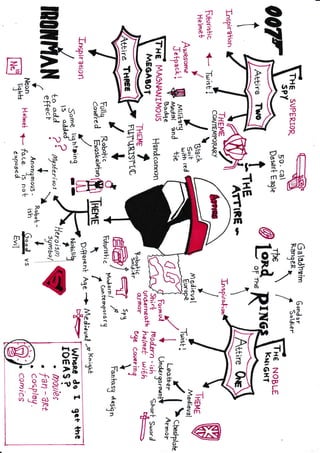 007
Inspiration
THE SUPERIOR
SPY
Attire TWO
Twist:
Futuristic
Helmet
Awesome
Jetpack!
THEME
CONTEMPORARY
Black
Suit
with red
tie
Military
Medals and
Badge
.50 cal
Desert Eagle
THE MAGNANIMOUS
MEGABOT
Attire THREE
Inspiration
IRONMAN
THEME
FUTURISTIC
Handcannon
Robotic
Exoskeleton
Fully
covered
Some lightning
is added
to add
effect
Neon
lights
THE
ATTIRE
THEME
Mysterious
Anonymous-
ish
face is not
exposed
Robot
Heroism
symbol
Good vs
Evil
Nobility
Different Age
Medieval
Knight
Futuristic
Modern
Contemporary
Spy
Galadhrim
Ranger
Gondor
Soldier
The
LORD
OF THE
RINGS
Inspiration
THE NOBLE
KNIGHT
Attire ONE
THEME
Medieval
Medieval
Europe
Twist:
Modern-ish
helmet with
eye covering
Formal
Shirt
underneath
armor
Chestplate
Armor
Leather
Undergarment
Short Sword
Fantasy design
Where do I get the
IDEAS?
• movies
• fan-art
• cosplay
• comics